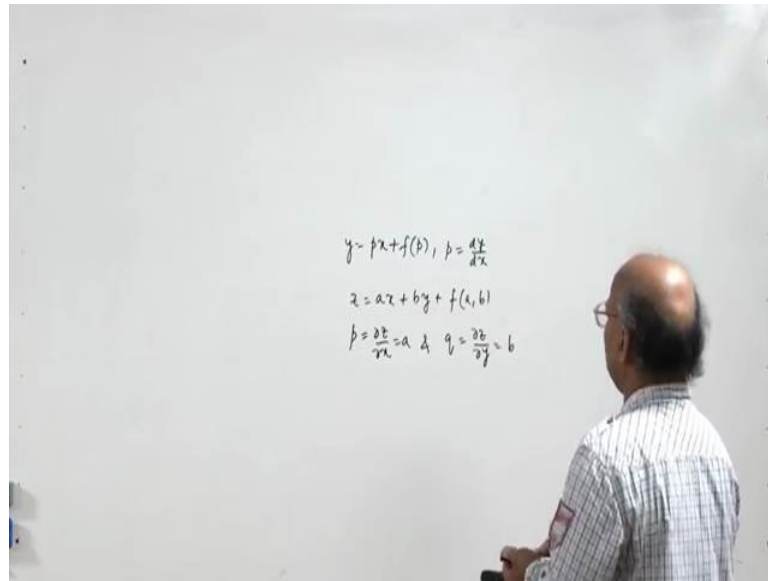 y = px + f(p), p = dy/dx
z = ax + by + f(a, b)
p = ∂z/∂x = a & q = ∂z/∂y = b